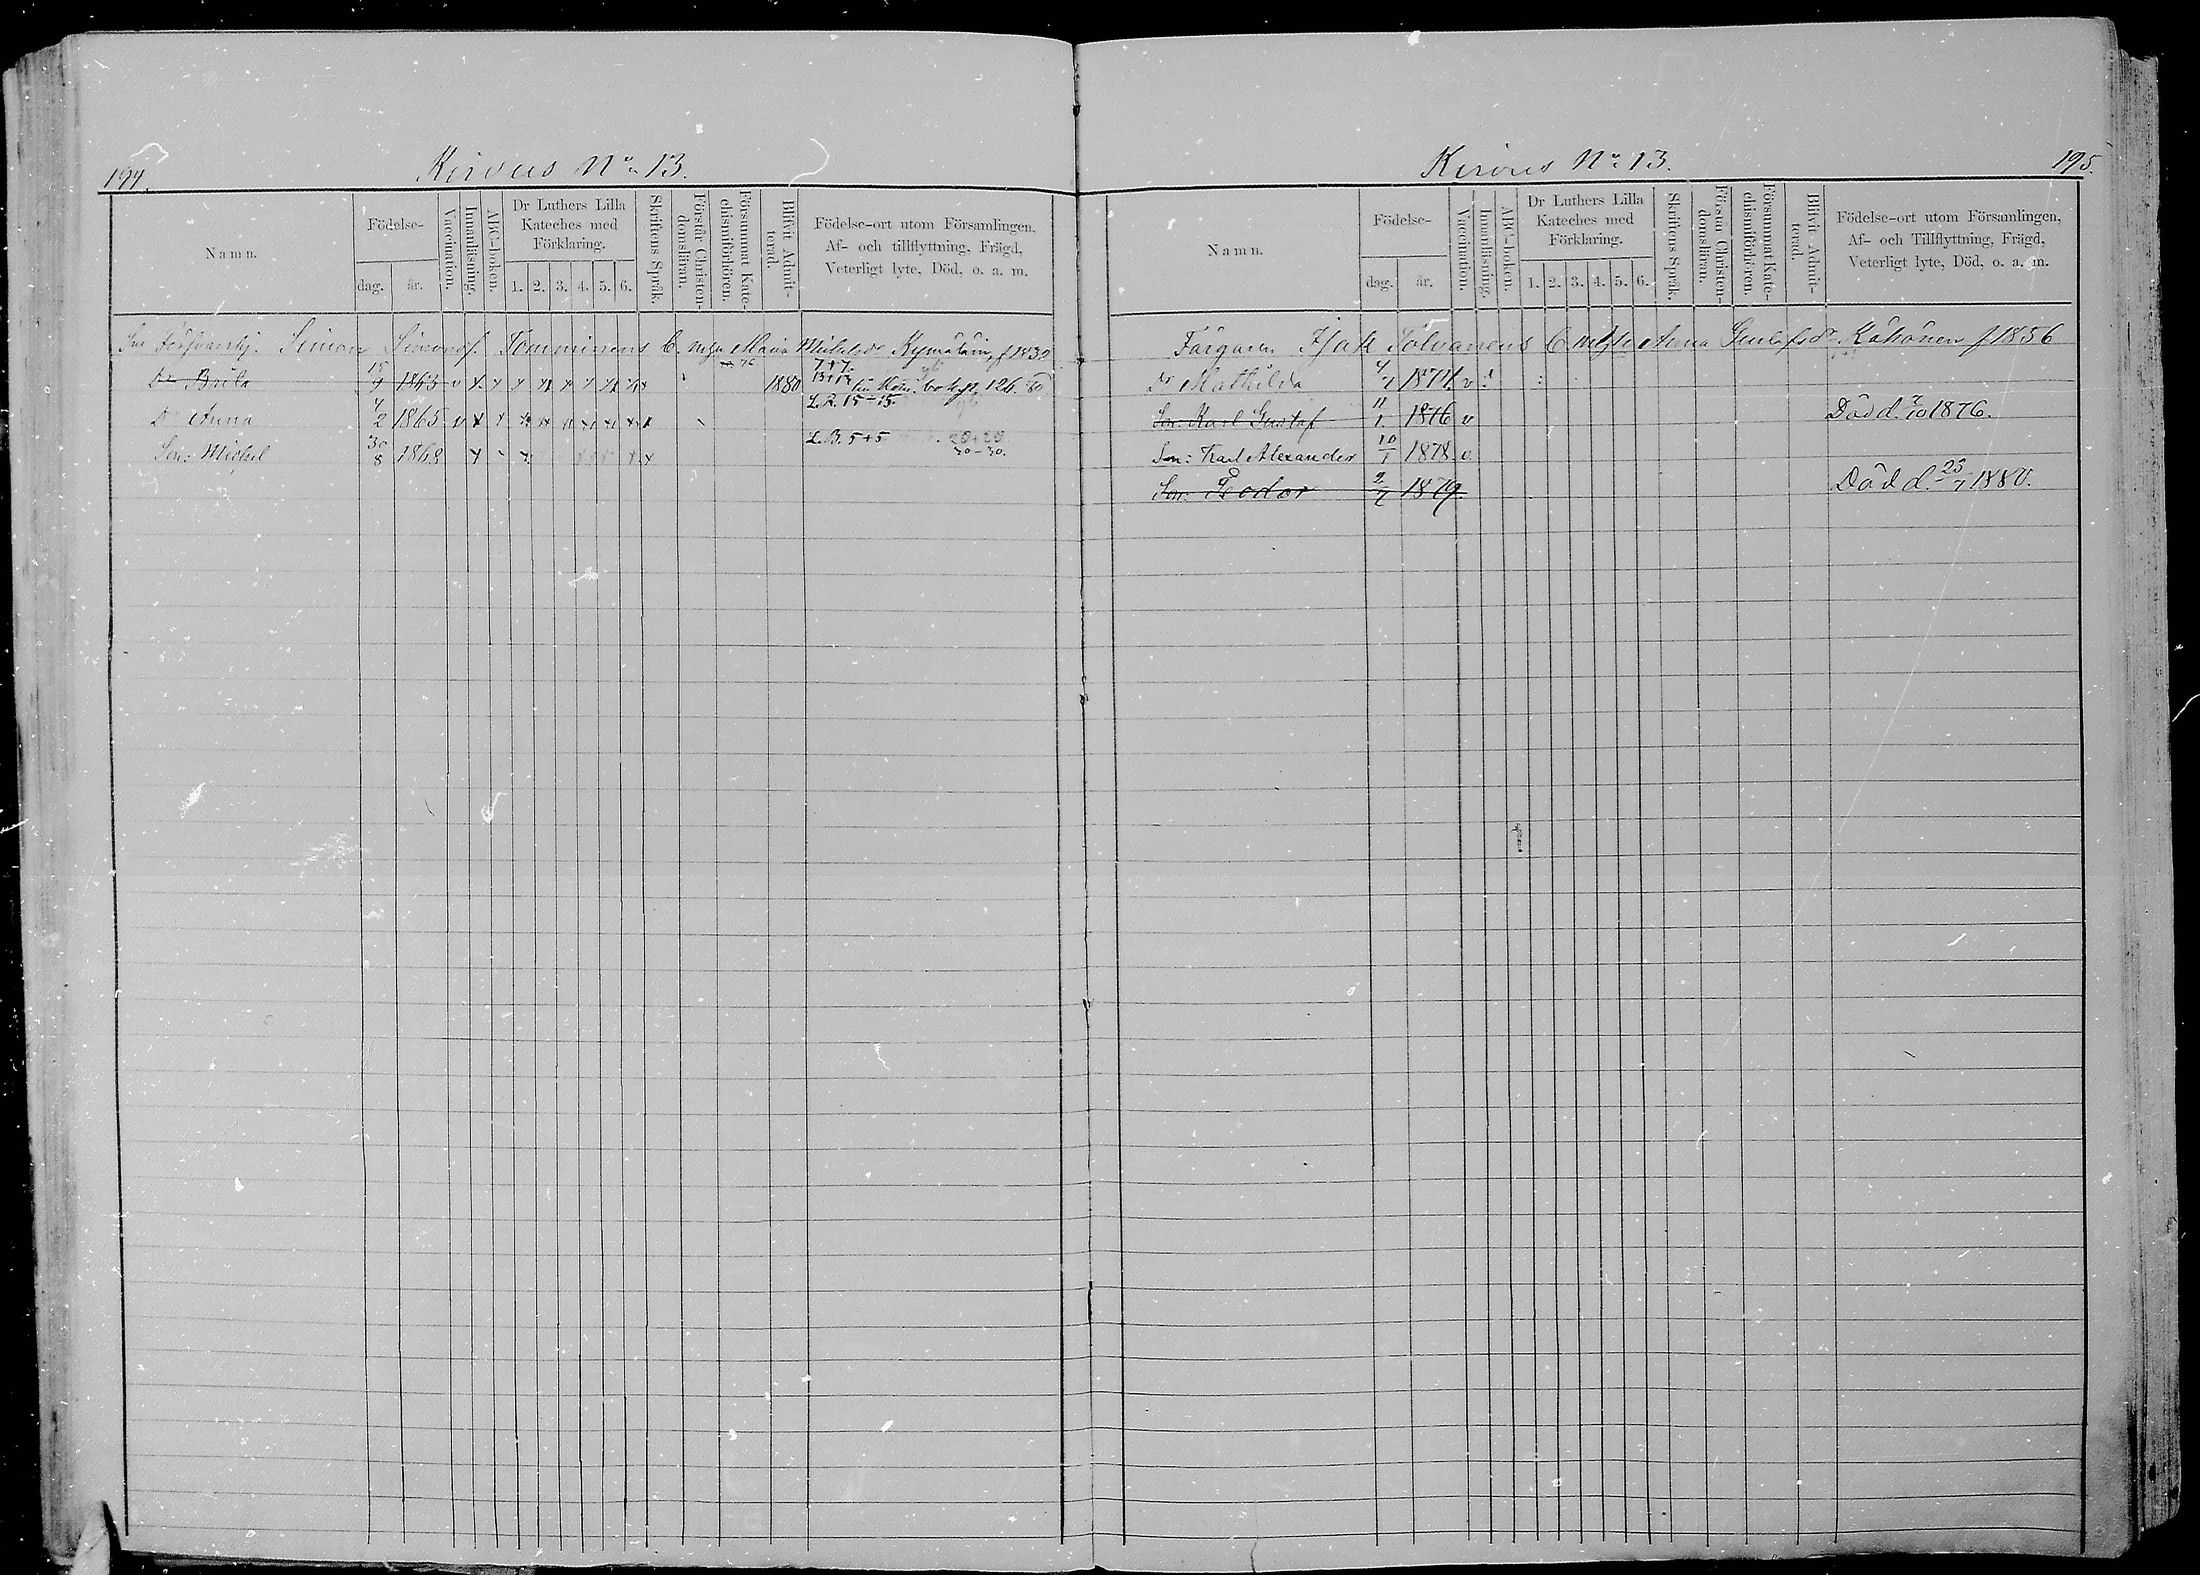 194.
Kirvus No 13.
Namn.
Födelse-
dag.
år.
Vaccination.
Innanläsning.
ABC-boken.
Dr Luthers Lilla
Kateches med
Förklaring.
1. 2. 3. 4. 5. 6.
Skriftens Språk.
Förstår Christen-
domsläran.
Försummat Kate-
chismiförhören.
Blifvit Admit-
terad.
Födelse-ort utom Församlingen,
Af- och tillflyttning, Frägd,
Veterligt lyte, Död, o. a. m.
Simon Simonss. Tomminens Maria f 1830
Dr Brita 15/4 1863 v x 1880 7+7.
13+13
L.R. 15-15.
Dr Anna 4/2 1865 v x
Son: Michel 30/8 1868 x L.B. 5+5 20+20
30-30.
Kirvus No 13.
195.
Namn.
Födelse-
dag.
år.
Vaccination.
Innanläsning.
ABC-boken.
Dr Luthers Lilla
Kateches med
Förklaring.
1. 2. 3. 4. 5. 6.
Skriftens Språk.
Förstår Christen-
domsläran.
Försummat Kate-
chismiförhören.
Blifvit Admit-
terad.
Födelse-ort utom Församlingen,
Af- och Tillflyttning, Frägd,
Veterligt lyte, Död, o. a. m.
Färgaren Isak Tolvanens Anna Gustafsdr Kähönen f 1856
Dr Mathilda 4/7 1874. v
Son: Karl Gustaf 11/1 1876 v Död d. 7/10 1876.
Son: Karl Alexander 10/1 1878 v.
Son: Feodor 2/7 1879. Död d. 23/7 1880.